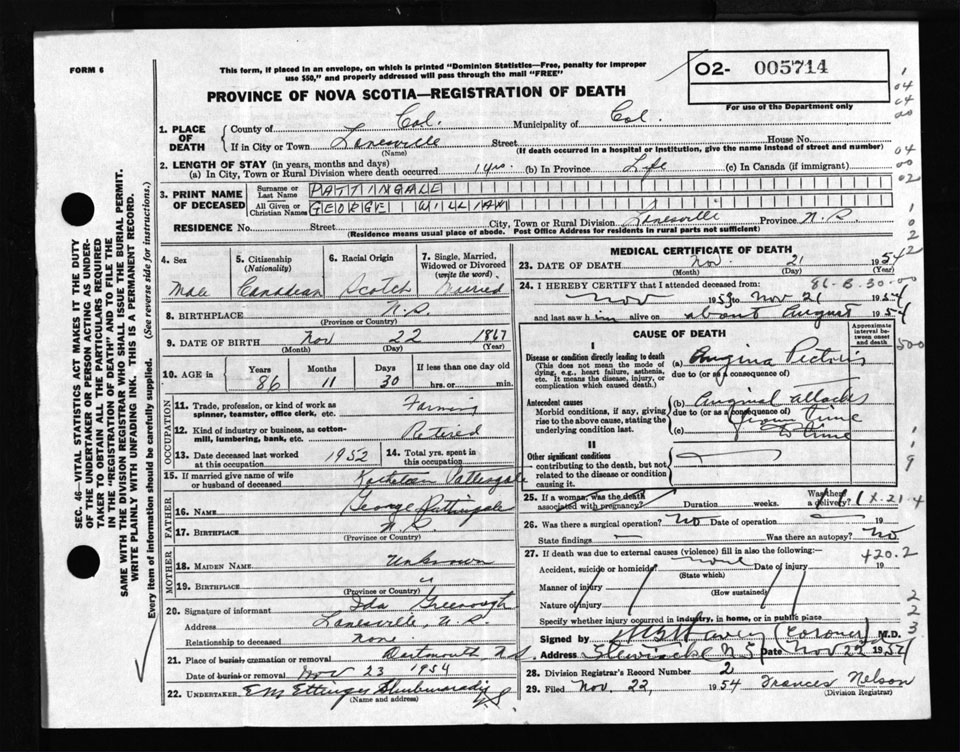 FORM 6
This form, if placed in an envelope, on which is printed "Dominion Statistics—Free, penalty for improper
use $50," and properly addressed will pass through the mail "FREE"
O2- 005714
PROVINCE OF NOVA SCOTIA—REGISTRATION OF DEATH
For use of the Department only
1. PLACE OF DEATH
County of Col. Municipality of Col.
If in City or Town Lanesville Street House No.
(Name) (If death occurred in a hospital or institution, give the name instead of street and number)
2. LENGTH OF STAY (in years, months and days)
(a) In City, Town or Rural Division where death occurred 1 yr. (b) In Province Life (c) In Canada (if immigrant)
3. PRINT NAME OF DECEASED
Surname or Last Name PATTINGALE
All Given or Christian Names GEORGE WILLIAM
RESIDENCE No. Street City, Town or Rural Division Lanesville Province N.S.
(Residence means usual place of abode. Post Office Address for residents in rural parts not sufficient)
4. Sex Male
5. Citizenship (Nationality) Canadian
6. Racial Origin Scotch
7. Single, Married, Widowed or Divorced (write the word) Married
8. BIRTHPLACE N.S.
(Province or Country)
9. DATE OF BIRTH Nov 22 1867
(Month) (Day) (Year)
10. AGE in Years 86 Months 11 Days 30 If less than one day hrs. or min.
OCCUPATION
11. Trade, profession, or kind of work as spinner, teamster, office clerk, etc. Farming
12. Kind of industry or business, as cotton-mill, lumbering, bank, etc. Retired
13. Date deceased last worked at this occupation 1952
14. Total yrs. spent in this occupation
15. If married give name of wife or husband of deceased Pattingale
FATHER
16. Name George Pattingale
17. Birthplace N.S.
(Province or Country)
MOTHER
18. MAIDEN NAME Unknown
19. BIRTHPLACE "
(Province or Country)
20. Signature of informant Ida Greenough
Address Lanesville, N.S.
Relationship to deceased None.
21. Place of burial, cremation or removal Dartmouth, N.S.
Date of burial or removal Nov 23 1954
22. UNDERTAKER E M Ettinger Shubenacadie NS
(Name and address)
MEDICAL CERTIFICATE OF DEATH
23. DATE OF DEATH Nov. 21 1954
(Month) (Day) (Year)
24. I HEREBY CERTIFY that I attended deceased from:
86-B-30-
Nov 1953 to Nov 21 1954
and last saw him alive on about August 1954
CAUSE OF DEATH
Approximate interval between onset and death
I
Disease or condition directly leading to death
(This does not mean the mode of dying, e.g., heart failure, asthenia, etc. It means the disease, injury, or complication which caused death.)
(a) Angina Pectoris
due to (or as a consequence of)
Antecedent causes
Morbid conditions, if any, giving rise to the above cause, stating the underlying condition last.
(b) Anginal attacks
due to (or as a consequence of)
from time
(c) to time
II
Other significant conditions
contributing to the death, but not related to the disease or condition causing it.
25. If a woman, was the death associated with pregnancy? Duration weeks. Was there a delivery? 1X-21-4
26. Was there a surgical operation? No Date of operation — 19
State findings — Was there an autopsy? No
27. If death was due to external causes (violence) fill in also the following:— 420.2
Accident, suicide or homicide? none Date of injury 19
(State which)
Manner of injury
(How sustained)
Nature of injury
Specify whether injury occurred in industry, in home, or in public place
Signed by (Coroner) M.D.
Address Stewiacke N S Date Nov 22 1954
28. Division Registrar's Record Number 2
29. Filed Nov. 22, 1954 Frances Nelson
(Division Registrar)
SEC. 46—VITAL STATISTICS ACT MAKES IT THE DUTY
OF THE UNDERTAKER OR PERSON ACTING AS UNDER-
TAKER TO OBTAIN ALL THE PARTICULARS REQUIRED
IN THE "REGISTRATION OF DEATH" AND TO FILE THE
SAME WITH THE DIVISION REGISTRAR WHO SHALL ISSUE THE BURIAL PERMIT.
WRITE PLAINLY WITH UNFADING INK. THIS IS A PERMANENT RECORD.
Every item of information should be carefully supplied. (See reverse side for instructions.)
1
04
04
00
04
00
02
1
0
2
2
500
1
1
9
2
2
3